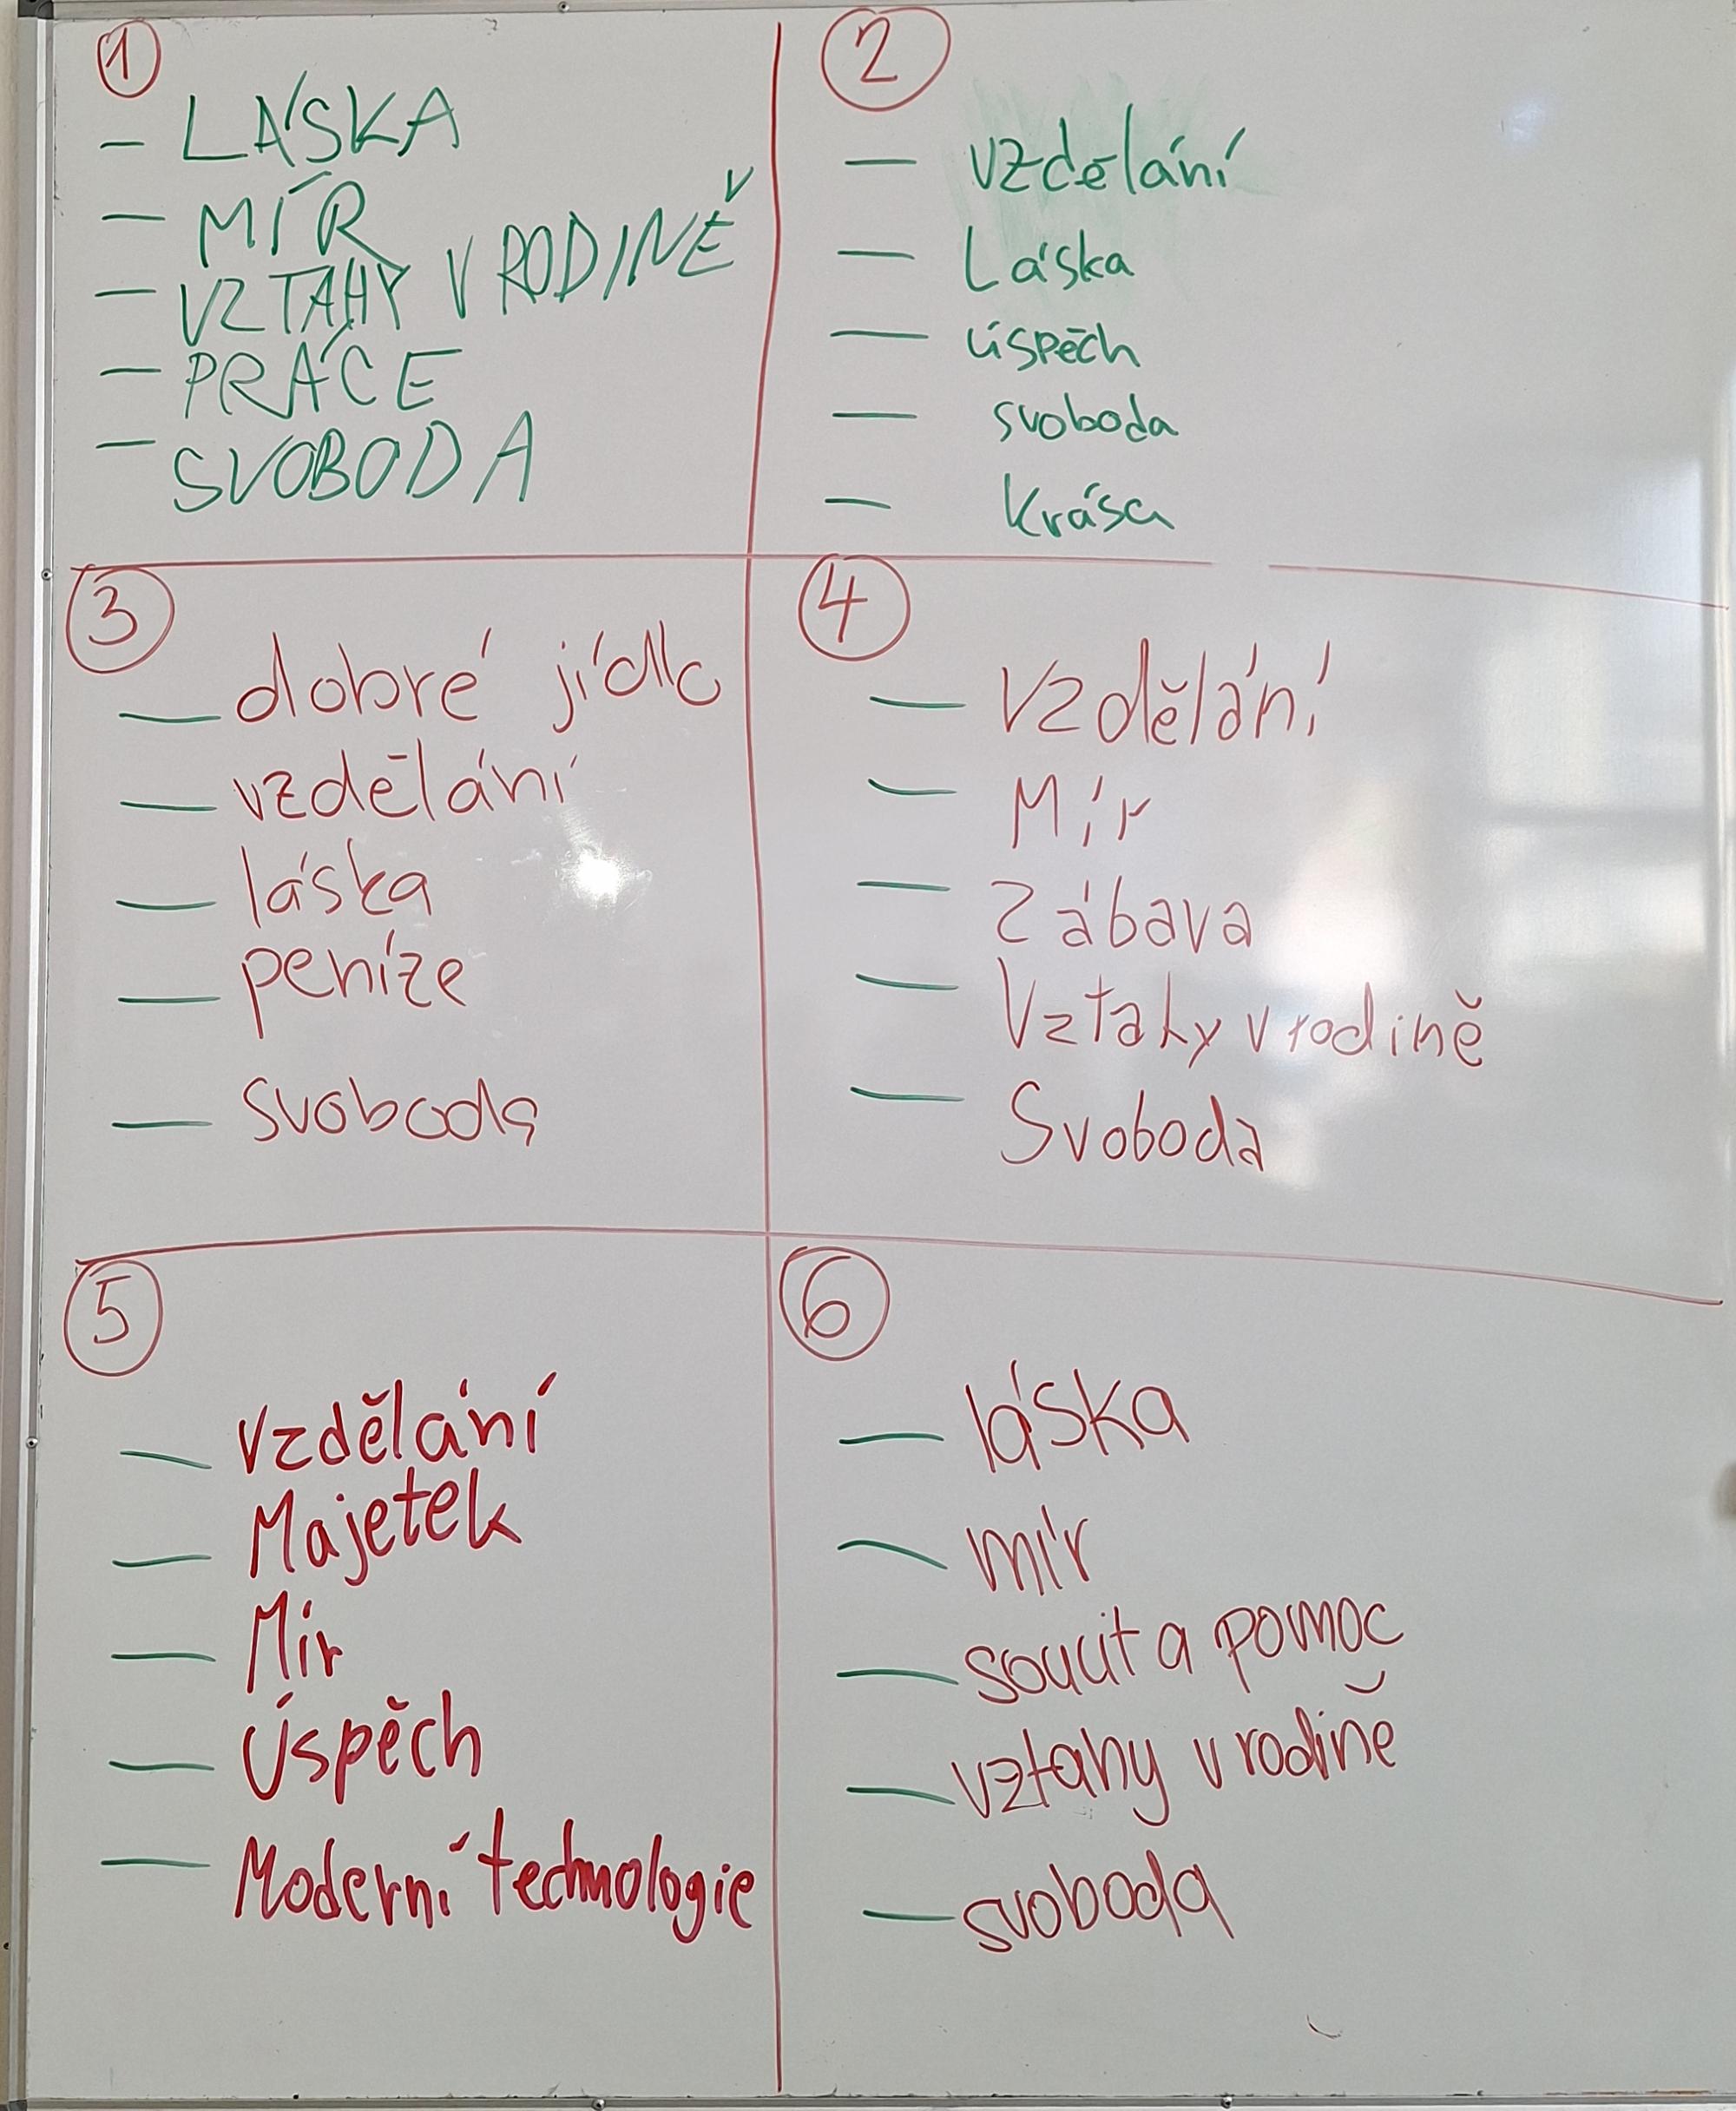 1
- LÁSKA
- MÍR
- VZTAHY V RODINĚ
- PRÁCE
- SVOBODA
2
- vzdělání
- Láska
- úspěch
- svoboda
- Krása
3
- dobré jídlo
- vzdělání
- láska
- peníze
- svoboda
4
- Vzdělání
- Mír
- Zábava
- Vztahy v rodině
- Svoboda
5
- Vzdělání
- Majetek
- Mír
- Úspěch
- Moderní technologie
6
- láska
- mír
- soucit a pomoc
- vztahy v rodině
- svoboda